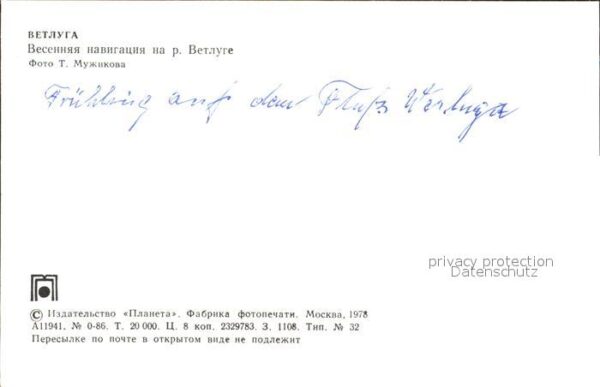 ВЕТЛУГА
Весенняя навигация на р. Ветлуге
Фото Т. Мужикова
Frühling auf dem Fluß
privacy protection
Datenschutz
© Издательство «Планета». Фабрика фотопечати. Москва, 1978
А11941. № 0-86. Т. 20 000. Ц. 8 коп. 2329783. З. 1108. Тип. № 32
Пересылке по почте в открытом виде не подлежит